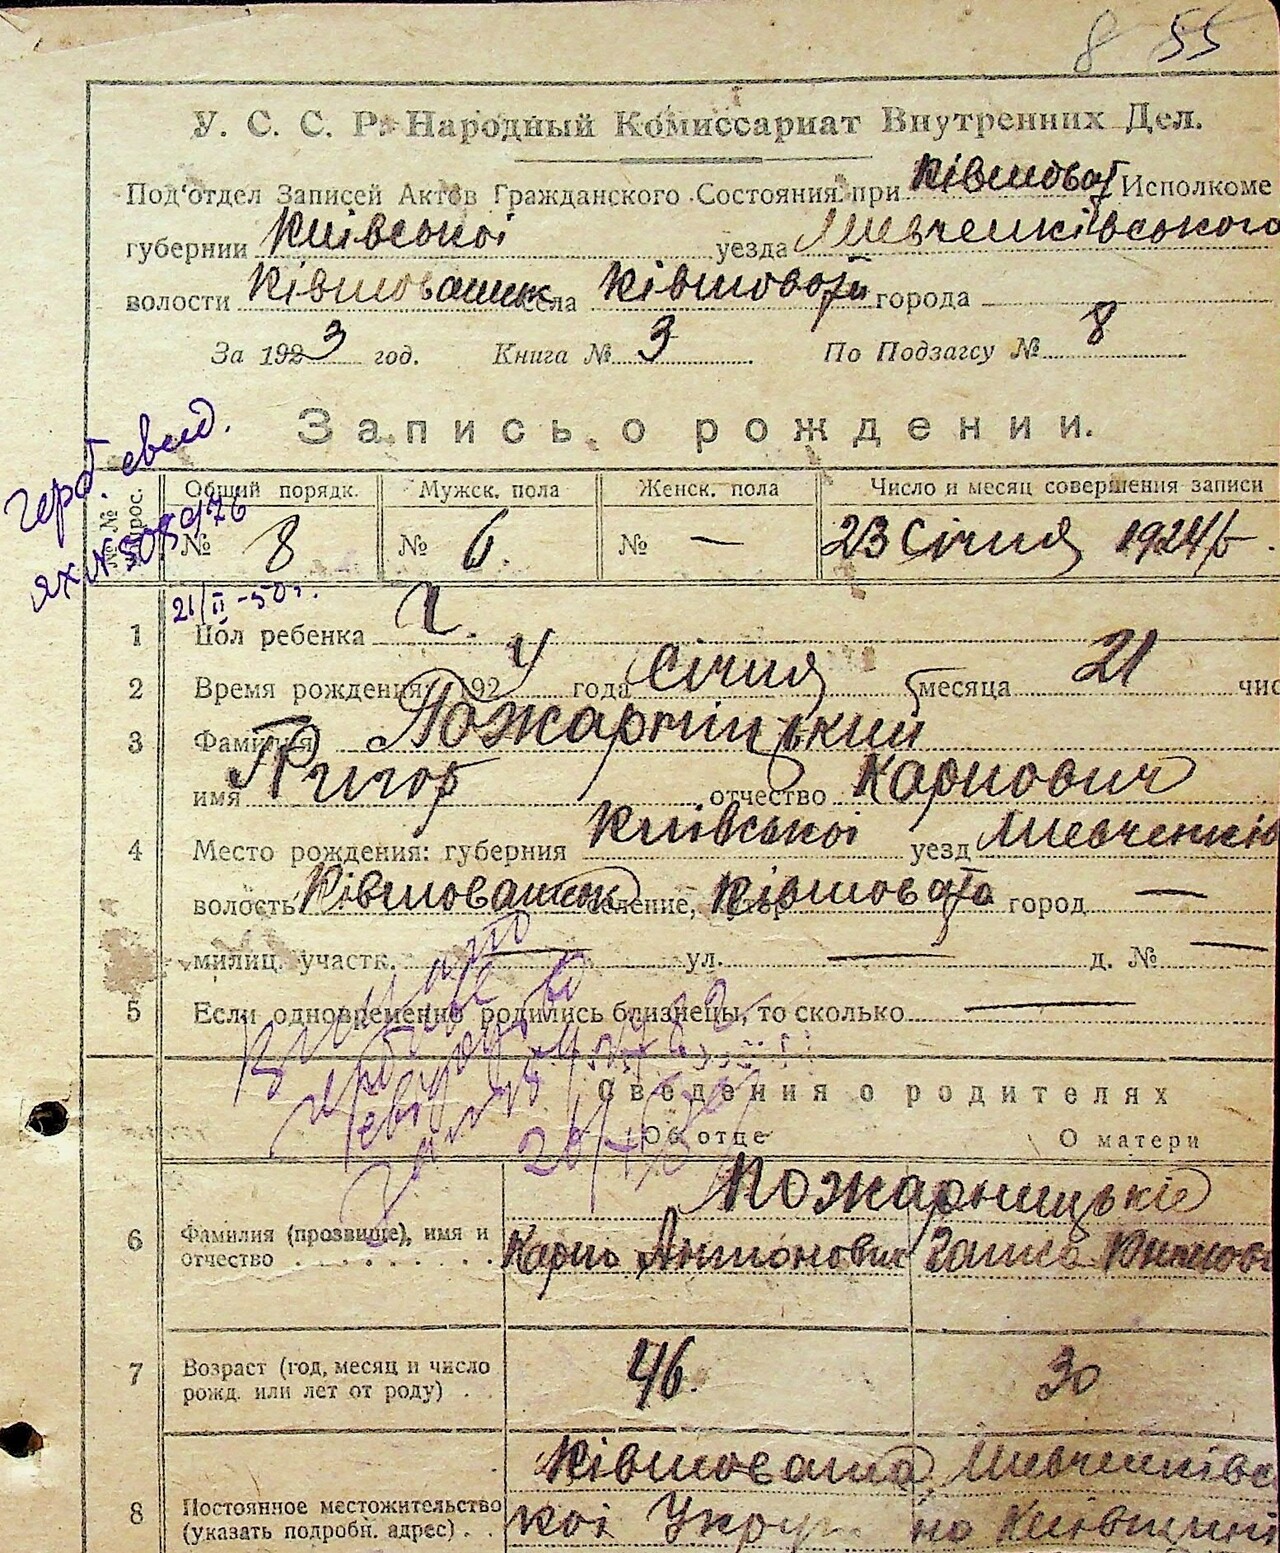 8 55
У. С. С. Р. Народный Комиссариат Внутренних Дел.
Под'отдел Записей Актов Гражданского Состояния при Ківшоват Исполкоме
губернии Київської уезда Шевченківського
волости Ківшоватськ села Ківшовата города
За 1923 год. Книга № 3 По Подзагсу № 8
Запись о рождении.
герб. свид.
ЯХ №
21/II-50г.
№№ Общий порядк. Мужск. пола Женск. пола Число и месяц совершения записи
№ 8 № 6. № — 23 Січня 1924 р.
1 Пол ребенка Ч.
2 Время рождения 1924 года Січня месяца 21 чис
3 Фамилия Пожарніцький
имя Григор отчество Карпович
4 Место рождения: губерния Київської уезд Шевченків
волость Ківшоватськ селение, Ківшовата город —
милиц. участк. — ул. — д. № —
5 Если одновременно родились близнецы, то сколько —
Сведения о родителях
Об отце О матери
Пожарницькіє
6 Фамилия (прозвище), имя и
отчество . . . . . . . . . Карпо Антонович Ганна
7 Возраст (год, месяц и число
рожд. или лет от роду) . . 46. 30
Ківшовата, Шевченківсь
8 Постоянное местожительство
(указать подробн. адрес) . . кої Округи на Київщині